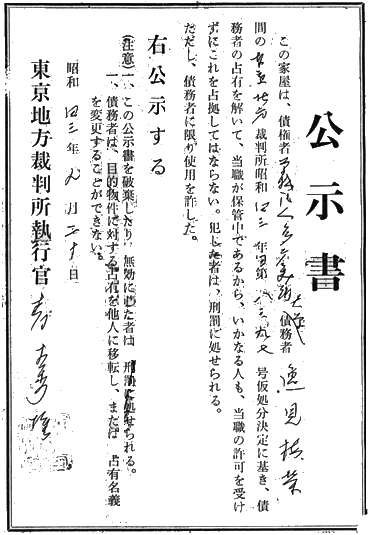 公示書
この家屋は、債権者 債務者 逸見
間の東京地方裁判所昭和四三年 第 号仮処分決定に基き、債
務者の占有を解いて、当職が保管中であるから、いかなる人も、当職の許可を受け
ずにこれを占拠してはならない。犯した者は、刑罰に処せられる。
ただし、債務者に限り使用を許した。
右公示する
(注意)一、この公示書を破棄したり、無効にした者は 刑罰に処せられる。
一、債務者は、目的物件に対する占有を他人に移転し、または 占有名義
を変更することができない。
昭和四三年九月二十日
東京地方裁判所執行官